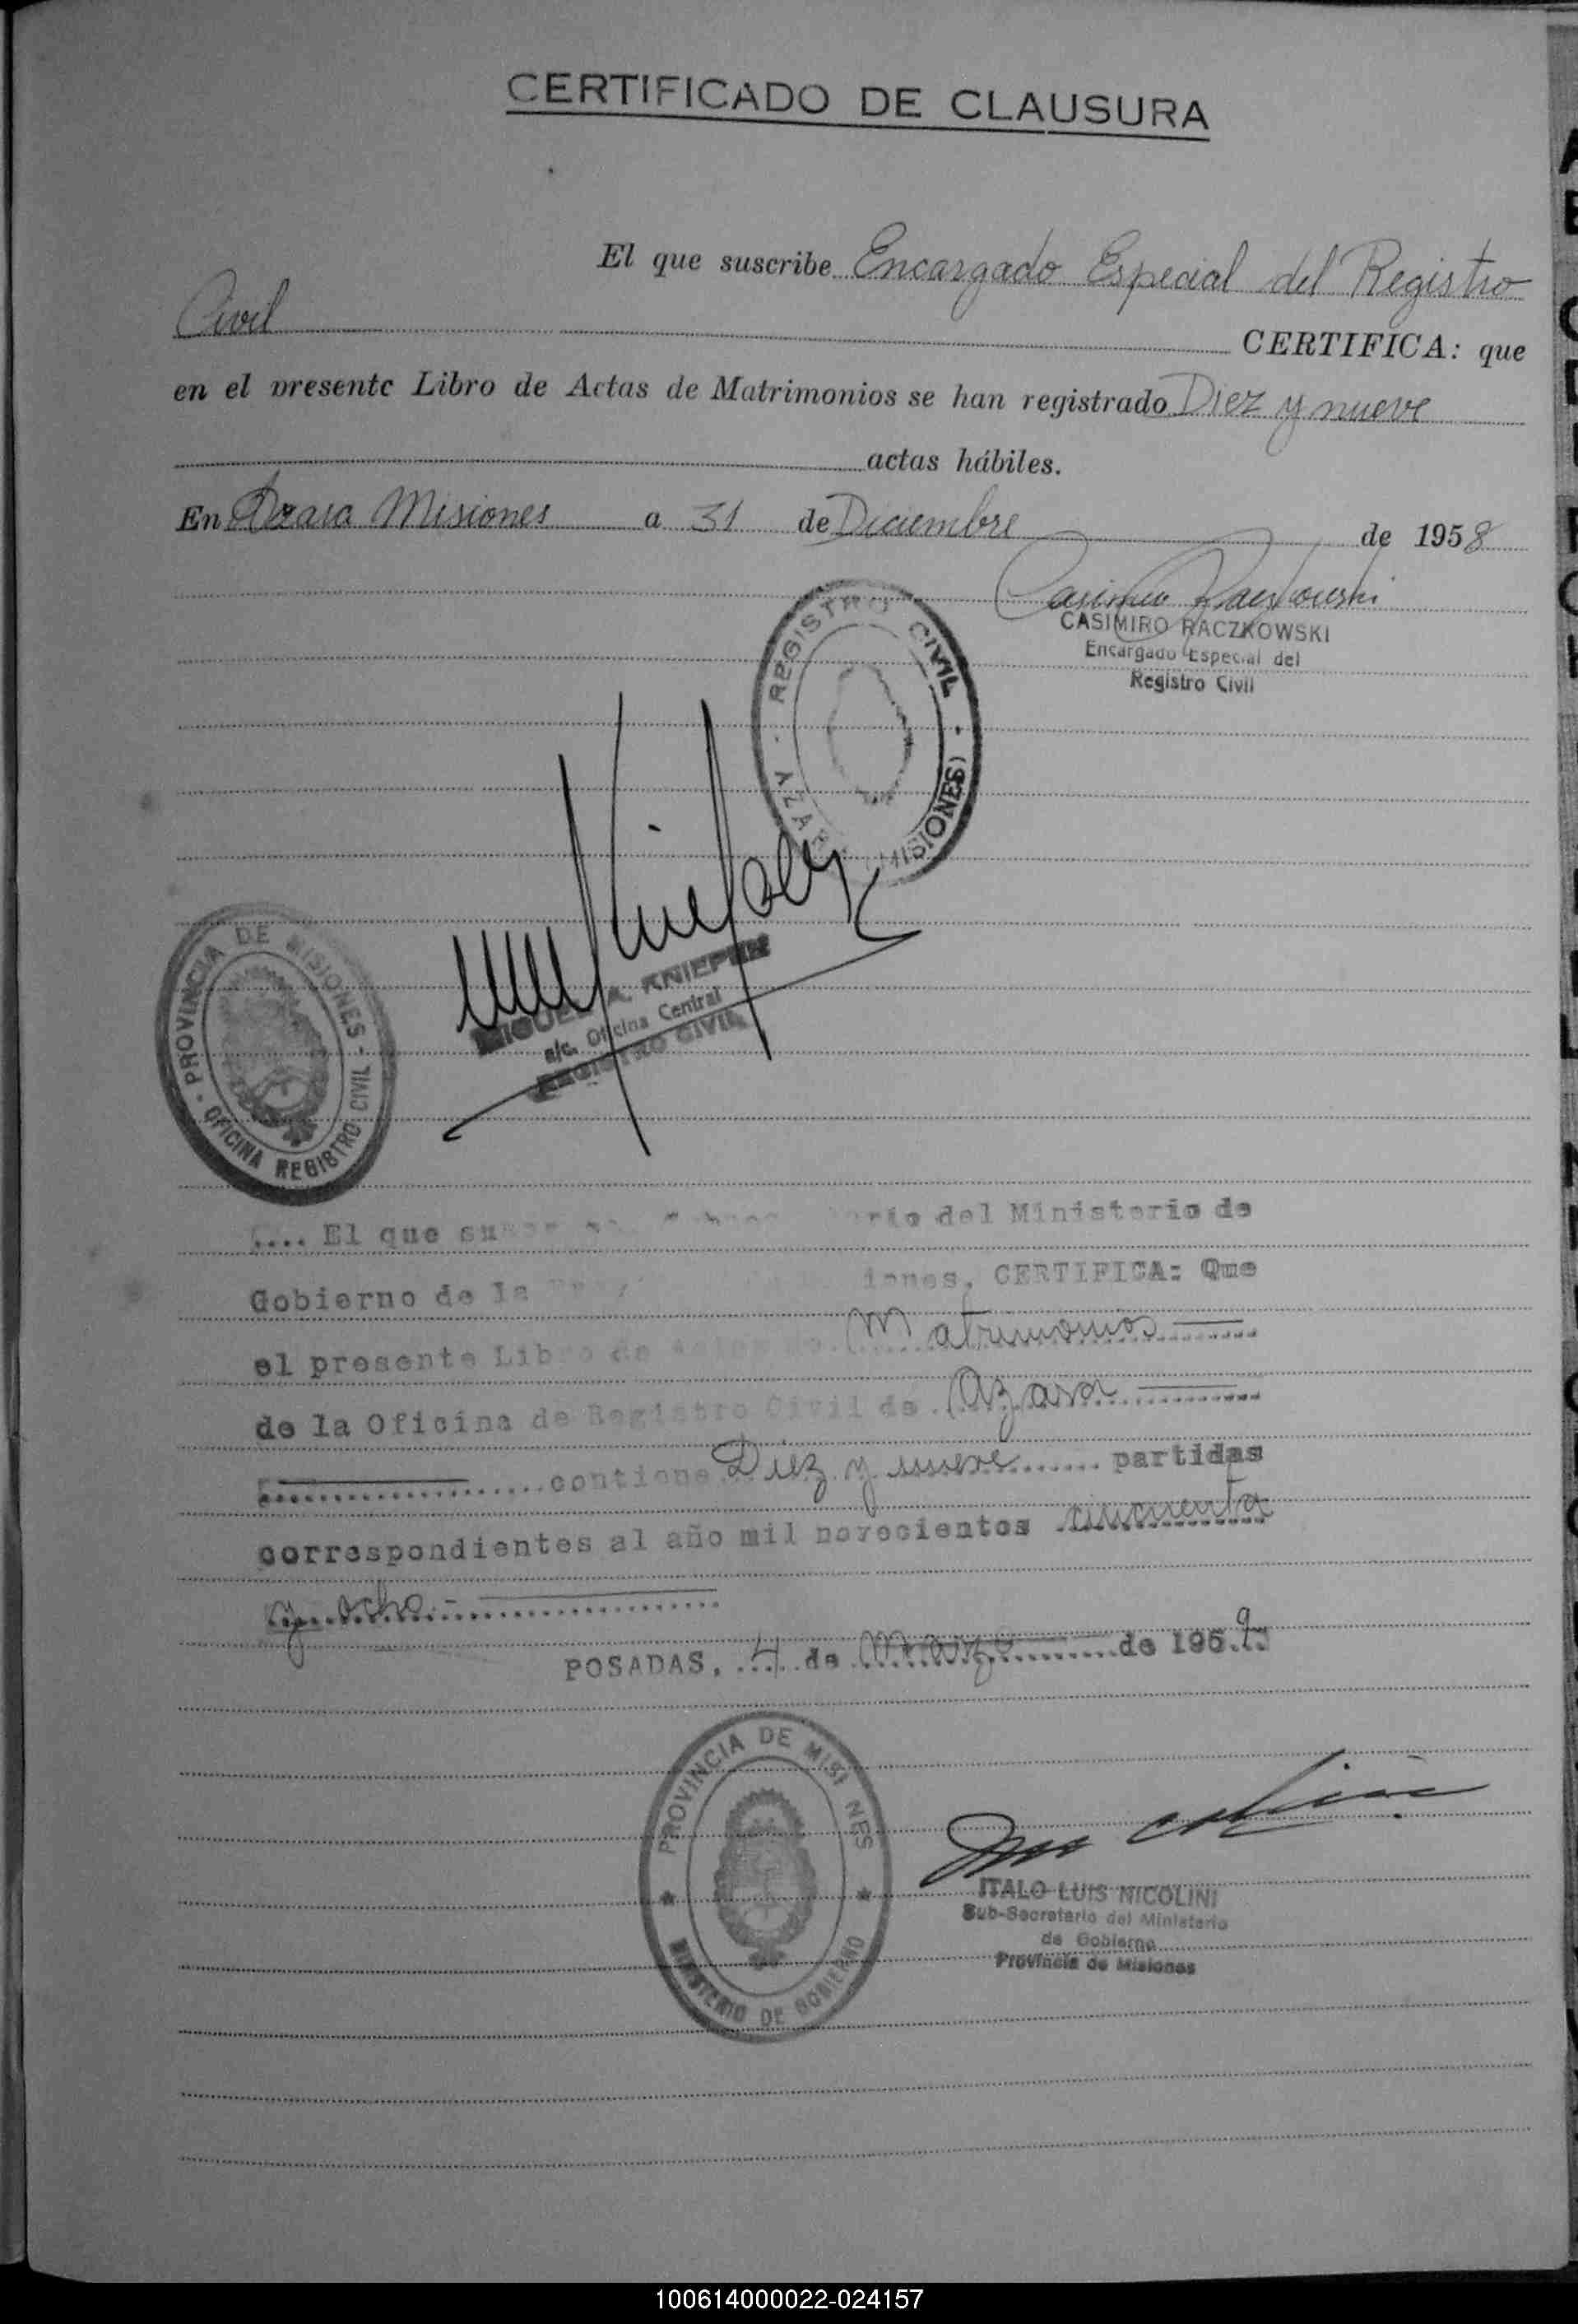 CERTIFICADO DE CLAUSURA
El que suscribe Encargado Especial del Registro
Civil CERTIFICA: que
en el presente Libro de Actas de Matrimonios se han registrado Diez y nueve
actas hábiles.
En Azara Misiones a 31 de Diciembre de 1958
Casimiro Raczkowski
CASIMIRO RACZKOWSKI
Encargado Especial del
Registro Civil
REGISTRO CIVIL - AZARA (MISIONES)
MIGUEL A. KNIEPHN
a/c. Oficina Central
REGISTRO CIVIL
PROVINCIA DE MISIONES - OFICINA REGISTRO CIVIL -
.... El que del Ministerio de
Gobierno de la CERTIFICA: Que
el presente Libro de Actas de Matrimonios
de la Oficina de Registro Civil de Azara
contiene Diez y nueve partidas
correspondientes al año mil novecientos cincuenta
y ocho
POSADAS, 4 de Marzo de 1959
PROVINCIA DE MISIONES
MINISTERIO DE GOBIERNO
ITALO LUIS NICOLINI
Sub-Secretario del Ministerio
de Gobierno
Provincia de Misiones
100614000022-024157